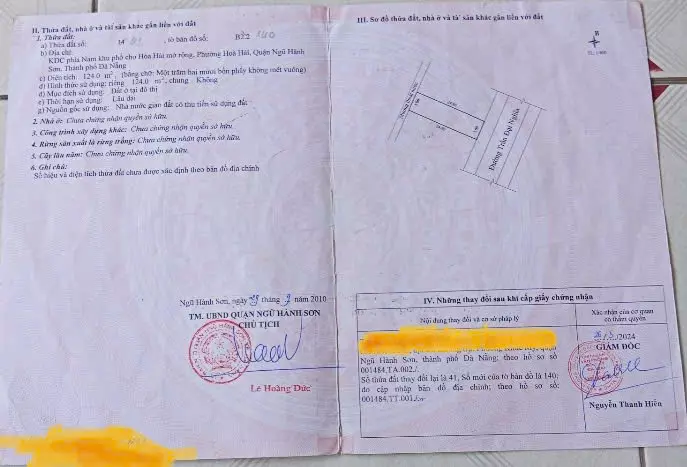 II. Thửa đất, nhà ở và tài sản khác gắn liền với đất
1. Thửa đất:
a) Thửa đất số: 14 , tờ bản đồ số: B2.2 140
b) Địa chỉ:
KDC phía Nam khu phố chợ Hòa Hải mở rộng, Phường Hoà Hải, Quận Ngũ Hành
Sơn, Thành phố Đà Nẵng
c) Diện tích: 124.0 m², (bằng chữ: Một trăm hai mươi bốn phẩy không mét vuông)
d) Hình thức sử dụng: riêng 124.0 m², chung Không
đ) Mục đích sử dụng: Đất ở tại đô thị
e) Thời hạn sử dụng: Lâu dài
g) Nguồn gốc sử dụng: Nhà nước giao đất có thu tiền sử dụng đất
2. Nhà ở: Chưa chứng nhận quyền sở hữu.
3. Công trình xây dựng khác: Chưa chứng nhận quyền sở hữu.
4. Rừng sản xuất là rừng trồng: Chưa chứng nhận quyền sở hữu.
5. Cây lâu năm: Chưa chứng nhận quyền sở hữu.
6. Ghi chú:
Số hiệu và diện tích thửa đất chưa được xác định theo bản đồ địa chính
Ngũ Hành Sơn, ngày tháng 9 năm 2010
TM. UBND QUẬN NGŨ HÀNH SƠN
CHỦ TỊCH
Lê Hoàng Đức
III. Sơ đồ thửa đất, nhà ở và tài sản khác gắn liền với đất
B
Đường Trần Đại Nghĩa
IV. Những thay đổi sau khi cấp giấy chứng nhận
Nội dung thay đổi và cơ sở pháp lý
Xác nhận của cơ quan
có thẩm quyền
Ngũ Hành Sơn, thành phố Đà Nẵng; theo hồ sơ số
001484.TA.002./.
Số thửa đất thay đổi lại là 41, Số mới của tờ bản đồ là 140;
do cập nhập bản đồ địa chính; theo hồ sơ số:
001484.TT.001./.
26/5/2024
GIÁM ĐỐC
Nguyễn Thanh Hiền